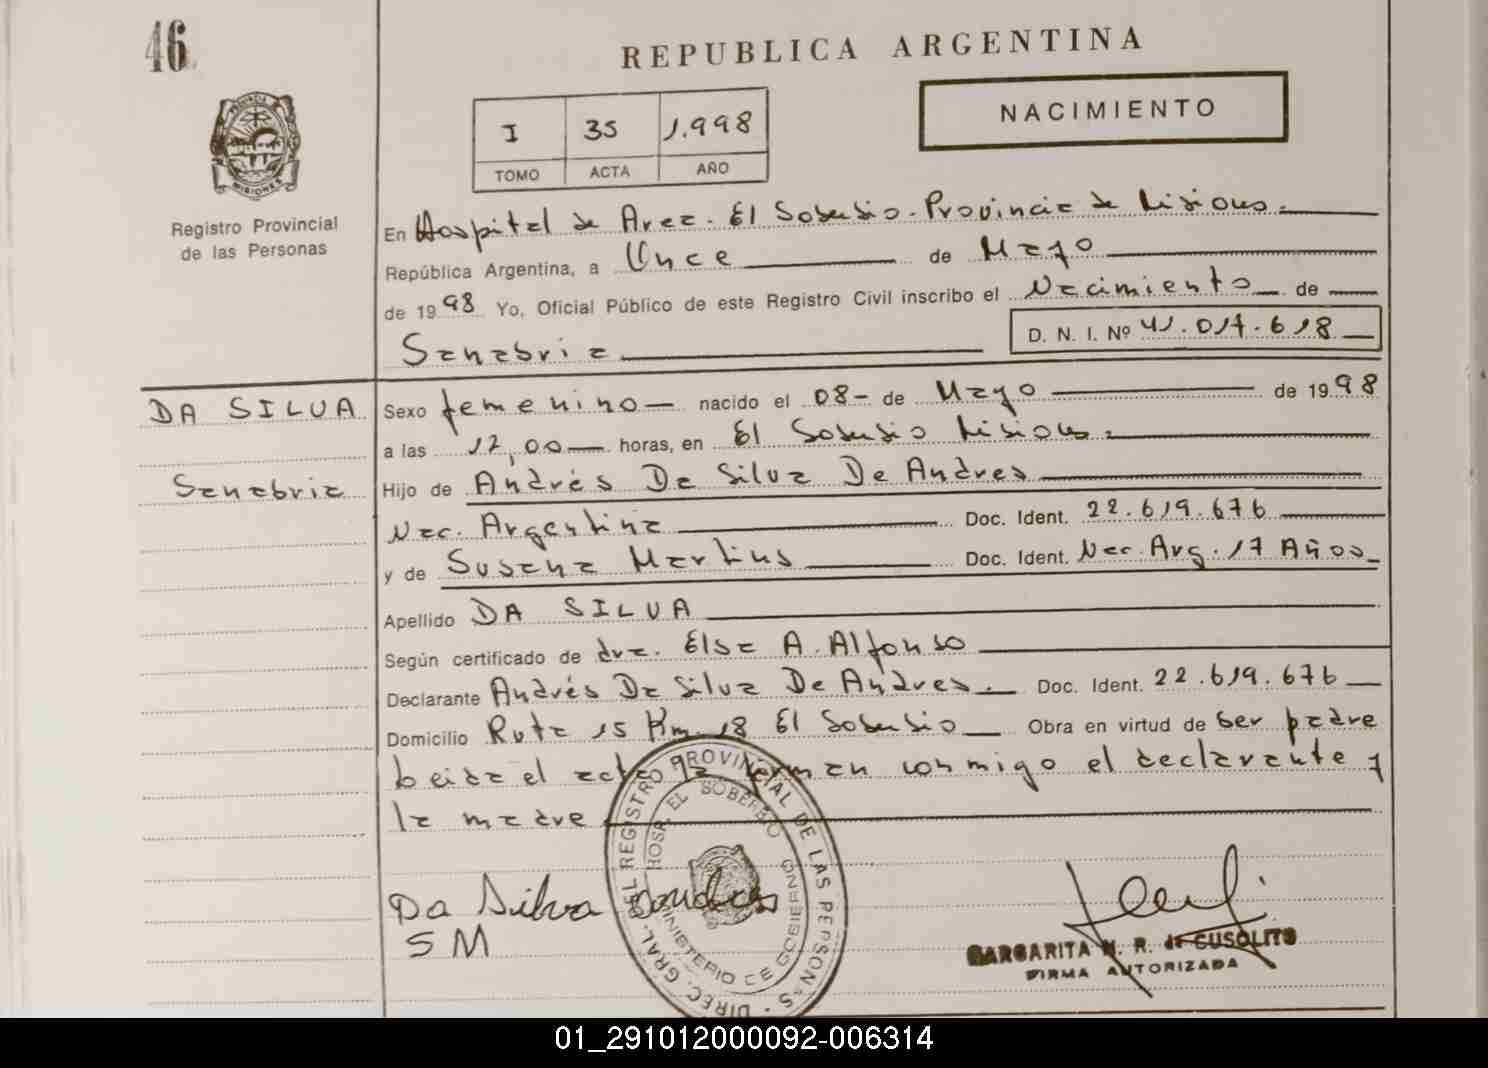 46
REPUBLICA ARGENTINA
NACIMIENTO
I 35 1.998
TOMO ACTA AÑO
PROVINCIA DE
MISIONES
Registro Provincial
de las Personas
En Hospital de Area. El Soberbio. Provincia de Misiones.
República Argentina, a Once de Mayo
de 1998 Yo, Oficial Público de este Registro Civil inscribo el Nacimiento de
Sanabria D. N. I. Nº 41.017.618
DA SILVA
Sanabria
Sexo femenino nacido el 08- de Mayo de 1998
a las 12,00 horas, en El Soberbio Misiones.
Hijo de Andrés Da Silva De Andres
Nac. Argentina Doc. Ident. 22.619.676
y de Susana Martins Doc. Ident. Nac. Arg. 17 Años
Apellido DA SILVA
Según certificado de dra. Elsa A. Alfonso
Declarante Andrés Da Silva De Andres. Doc. Ident. 22.619.676
Domicilio Ruta 15 Km. 18 El Soberbio Obra en virtud de ser padre
leida el acta la firman conmigo el declarante y
la madre
Da Silva Andres
SM
DIREC. GRAL. DEL REGISTRO PROVINCIAL DE LAS PERSONAS
HOSP. EL SOBERBIO
MINISTERIO DE GOBIERNO
MARGARITA N. R. de CUSOLITO
FIRMA AUTORIZADA
01_291012000092-006314